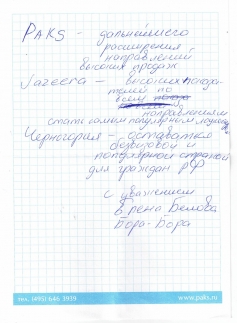 PAKS – дальнейшего
расширения
направлений
высоких продаж
Jazeera – высоких показа-
телей по
всем
направлениям
стать самым популярным
Черногория – оставаться
безвизовой и
популярной страной
для граждан РФ
с уважением
Елена Белова
Бора-Бора
тел. (495) 646 3939
www.paks.ru